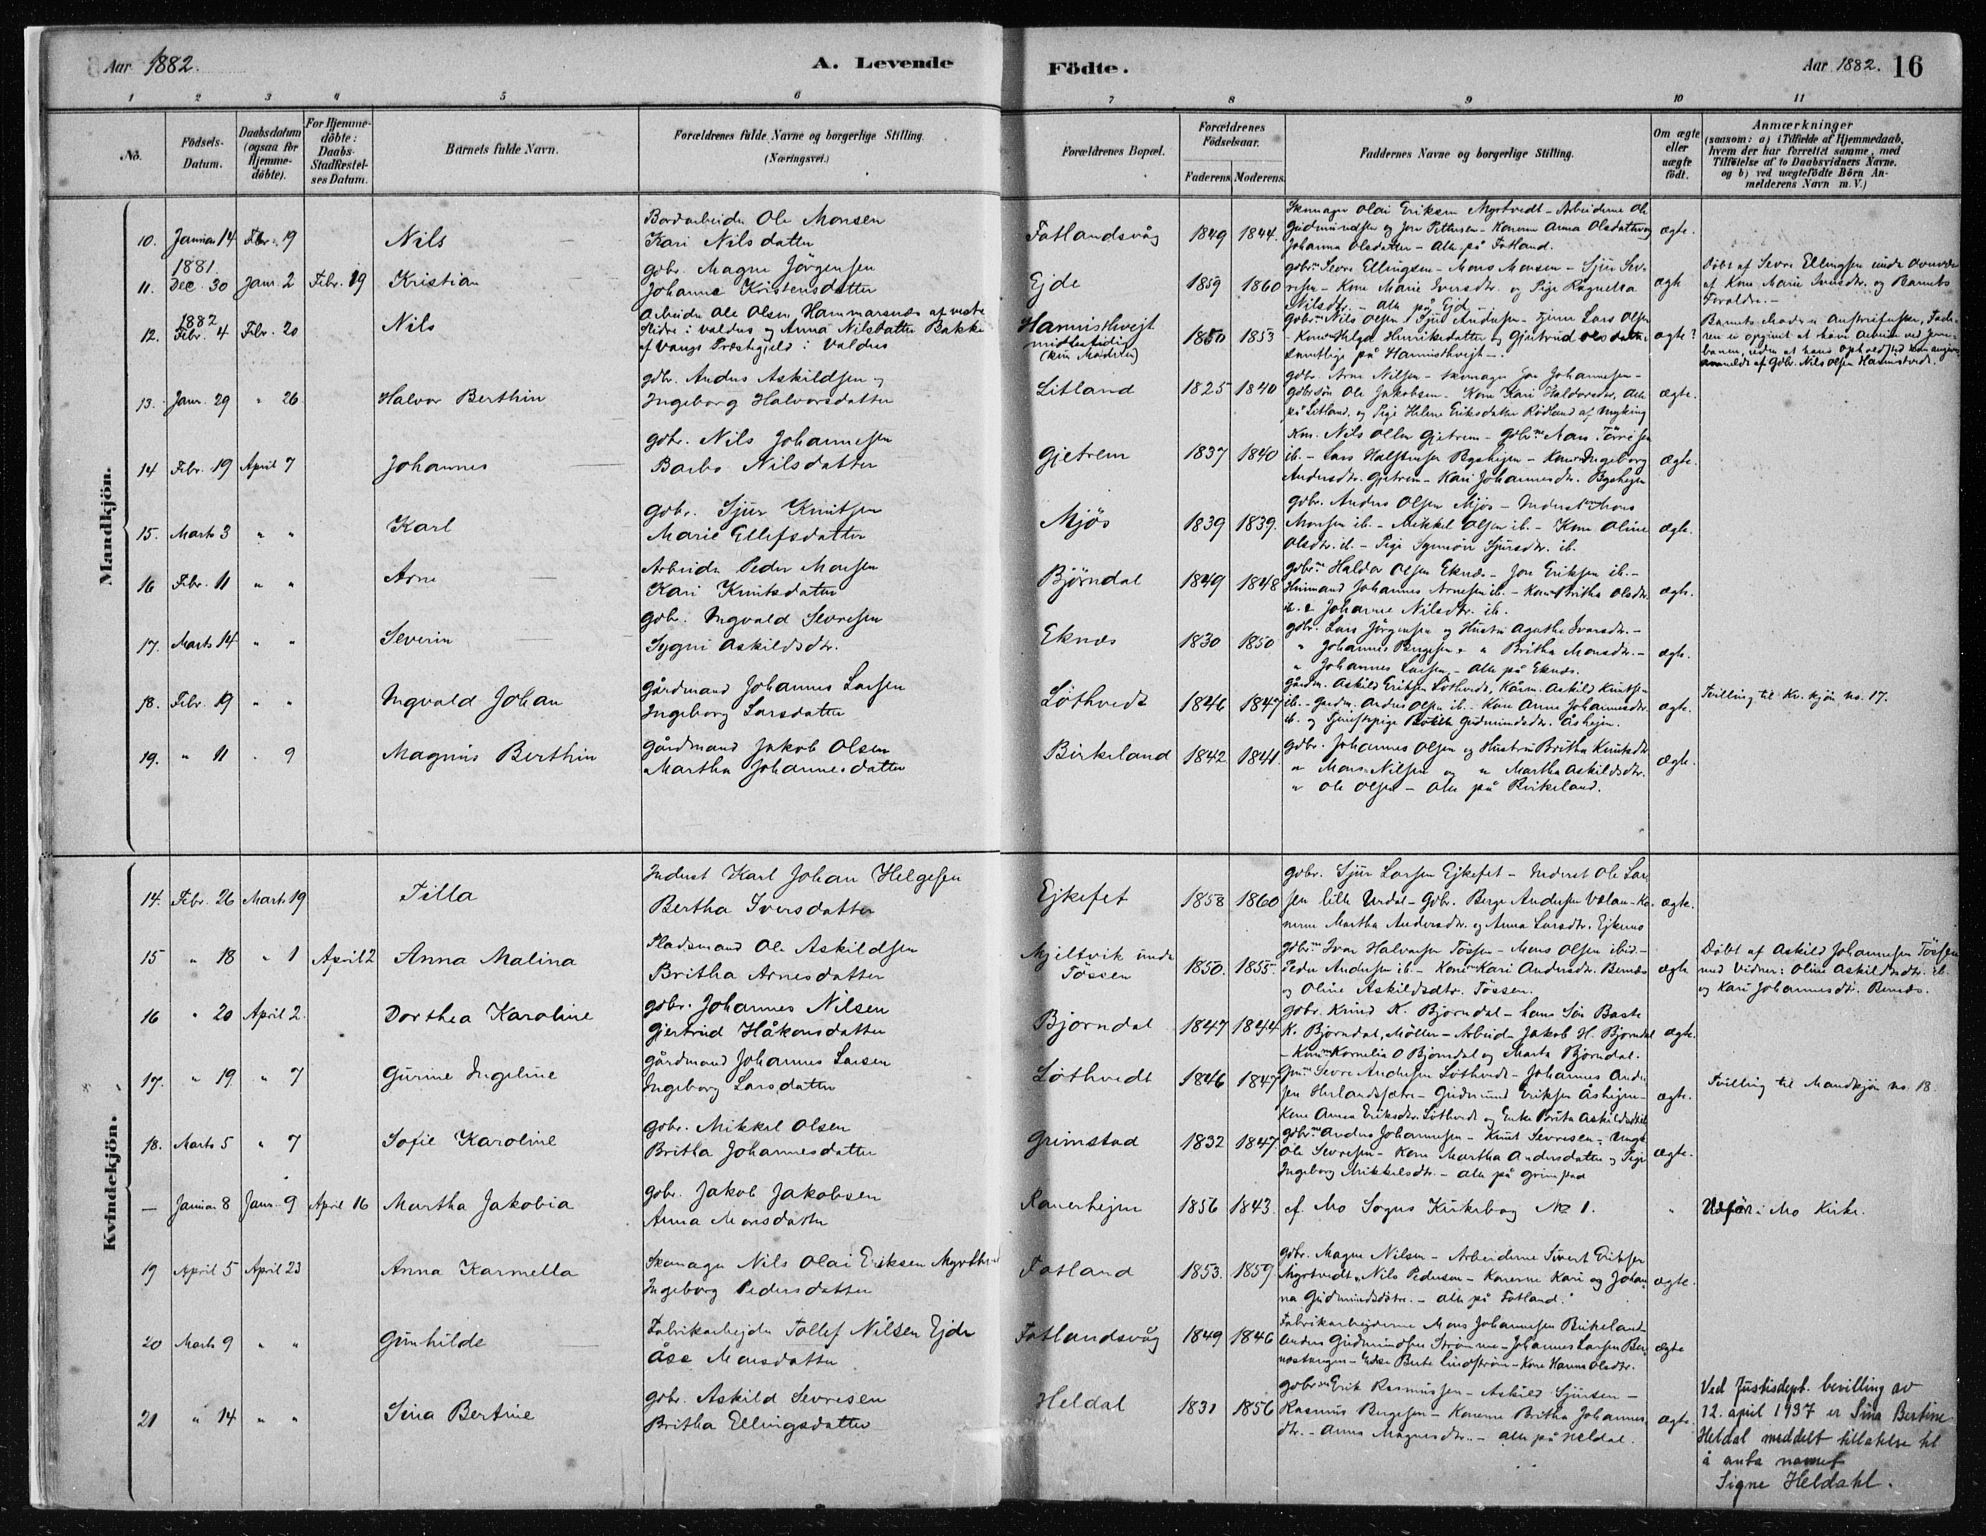 Aar 1882.
A. Levende
Födte.
Aar 1882. 16
1 2 3 4 5 6 7 8 9 10 11
No.
Födsels-Datum.
Daabsdatum (ogsaa for Hjemmedöbte).
For Hjemmedöbte: Daabs-Stadfestelses Datum.
Barnets fulde Navn.
Forældrenes fulde Navne og borgerlige Stilling.
(Næringsvei.)
Forældrenes Bopæl.
Forældrenes Födselsaar.
Faderens. Moderens.
Faddernes Navne og borgerlige Stilling.
Om ægte eller uægte födt.
Anmærkninger
(saasom: a) i Tilfælde af Hjemmedaab, hvem der har forrettet samme, med Tilföielse af to Daabsvidners Navne. og b) ved uægtefödte Börn Anmelderens Navn m. V.)
Mandkjön.
10. Januar 14 Febr. 19 Nils
Bordarbeider Ole Monsen
Kari Nilsdatter
Fotlandsvåg 1849 1844.
Skomager Olai Eriksen Myrtvedt - Arbeiderne Ole
Gudmundsen og Jon Pettersen - Konerne Anna Olsdatter og
Johanna Olsdatter - alle på Fotland.
ægte.
11. 1881. Dec. 30 Janr. 2 Febr. 19 Kristian
gbr. Magne Jörgensen
Johanne Kristensdatter
Ejde 1859 1860
gbr. Sevre Ellingsen - Mons Monsen - Sjur Sevresen - Kone Marie Iversdtr. og Pige Ragnilla
Nilsdtr. - alle på Ejde
ægte
Döbt af Sevre Ellingsen
af Kone Marie Iversdtr. og Barnets
Forældre. -
12. 1882 Febr. 4 Febr. 20 Nils
Arbeider Ole Olsen Hammarsnæs af vestre
Slidre i Valdres og Anna Nilsdatter Bakke
af Vangs Præstegjeld i Valdres
Hannisthvejt
midlertidig
(kun Moderen)
1850 1853
gbr. Nils Olsen - Sjur Andersen - tjener Lars Olsen
- Kone Helga Henriksdatter og Gjertrud Olsdatter
samtlige på Hannisthvejt -
ægte?
13. Janr. 29 " 26 Halvor Berthin
gbr. Anders Askildsen og
Ingeborg Halvorsdatter
Litland 1825 1840
gbr. Arne Nilsen - skomager Jon Johannesen -
gbrsön Ole Jakobsen. Kone Kari Haldorsdtr. alle
på Litland og Pige Helene Eriksdatter Rödland af Myking
ægte.
14 Febr. 19 April 7 Johannes
gbr. Nils Johannesen
Barbo Nilsdatter
Gjetrem 1837 1840
Nils Olsen Gjetrem - Gbr. Mons Törresen
ib. - Lars Halstensen Byshejen - Kone Ingeborg
Andersdtr. Gjetrem - Kari Johannesdtr. Byshejen
ægte.
15. Marts 3 " " Karl
gbr. Sjur Knutsen
Marie Ellefsdatter
Mjös 1839 1839.
gbr. Anders Olsen Mjös - Inderst Mons
Monsen ib. - Mikkel Olsen ib. - Kone Oline
Olsdtr. ib. - Pige Synnöv Sjursdtr. ib.
ægte.
16 Febr. 11 " " Arne
Arbeider Peder Monsen
Kari Knutsdatter
Björndal 1849 1848
gbr. Haldor Olsen Eknæs - Jon Eriksen ib. -
Huusmand Johannes Arnesen ib. - Kone Britha Olsdtr.
ib. & Johanne Nilsdtr. ib.
ægte.
17. Marts 14 " " Severin
gbr. Ingvald Sevresen
Sygni Askildsdtr.
Eknæs 1830 1850
gbr. Lars Jörgensen og Hustru Agathe Ivarsdtr. -
" Johannes Bergesen & " Britha Monsdtr. -
" Johannes Larsen - alle på Eknæs.
ægte.
18. Febr. 19 " " Ingvald Johan
Gårdmand Johannes Larsen
Ingeborg Larsdatter
Löthvedt 1846 1847
gårdm. Askild Eriksen Löthvedt, Kårm. Askild Knutsen
ib. - gårdm. Anders Olsen ib. - Kone Anne Johannesdtr.
ib. og Tjenestepige Gudmundsdtr. Åshejen.
ægte.
Tvilling til Kv. kjön no. 17.
19. " 11 " 9 Magnus Berthin
Gårdmand Jakob Olsen
Martha Johannesdatter
Birkeland 1842 1841
gbr. Johannes Olsen og Hustru Britha Knutsdtr
" Mons Nilsen og " Martha Askildsdtr.
" Ole Olsen - alle på Birkeland.
ægte.
Kvindekjön.
14. Febr. 26 Marts 19 Tilla
Inderst Karl Johan Helgesen
Bertha Iversdatter
Ejkefet 1858 1860
gbr. Sjur Larsen Ejkefet - Inderst Ole Larsen lille Urdal - Gbr. Berge Andersen Vælan - Konerne Martha Andersdtr. og Anna Larsdtr. Ejkemo
ægte.
15 " 18 " 1 April 2 Anna Malina
Pladsmand Ole Askildsen
Britha Arnesdatter
Mjeltvik under
Tössen
1850. 1855.
gbr. Ivar Halvorsen Tössen - Mons Olsen ibid -
Peder Andersen ib. - Kone Kari Andersdtr. Bernæs
og Oline Askildsdtr. Tössen.
ægte
Döbt af Askild Johannesen Tössen
med Vidner: Oline Askildsdtr. ib.
og Kari Johannesdtr. Bernæs.
16 " 20 April 2. Dorthea Karoline
gbr. Johannes Nilsen
Gjertrud Håkonsdatter
Björndal 1847 1844
gbr. Knud K. Björndal - hans Sön Baste
K. Björndal, Möller - Arbeider Jakob H. Björndal
- Kone Kornelia O Björndal og Marta Björndal.
ægte.
17. " 19 " 7 Gurine Ingeline
Gårdmand Johannes Larsen
Ingeborg Larsdatter
Löthvedt 1846 1847
Sevre Andersen Löthvedt - Johannes Andersen Herlandsætre - Gudmund Eriksen Åshejen -
Kone Anna Eriksdtr. Löthvedt og Enke Brita Askildsdtr
ægte.
Tvilling til Mandkjön no. 18.
18. Marts 5 " 7 Sofie Karoline
gbr. Mikkel Olsen
Britha Johannesdatter
Grimstad 1832 1847
gbr. Anders Johannesen - Knut Sevresen - Ungk.
Ole Sevresen - Kone Martha Andersdatter og Pige
Ingeborg Mikkelsdtr. - alle på Grimstad
ægte.
- Januar 8 Janr. 9 April 16 Martha Jakobia
gbr. Jakob Jakobsen
Anna Monsdatter
Ranerhejen 1856 1843.
cf. Mo Sogns Kirkebog No 1.
"
Udför i Mo Kirke.
19 April 5 April 23 Anna Karmella
Skomager Nils Olai Eriksen Myrthvedt
Ingeborg Pedersdatter
Fotland 1853. 1859
gbr. Magne Nilsen - Arbeiderne Sivert Eriksen
Myrtvedt, Nils Pedersen - Konerne Kari og Johanna Gudmundsdötre. - alle på Fotland.
ægte.
20 Marts 9 " " Gunhilde
Fabrikarbejder Tollef Nilsen Ejde
Åse Monsdatter
Fotlandsvåg 1849 1846
Fabrikarbejderne Mons Johannesen Birkeland -
Anders Gudmundsen Strömme - Johannes Larsen Bernæstangen - Enke Berte Lindström - Kone Hanna Olsdtr.
ægte
21 " 14 " " Sina Bertine
gbr. Askild Sevresen
Britha Ellingsdatter
Heldal 1831 1856
gbr. Erik Rasmussen - Askild Sjursen -
Rasmus Bergesen - Konerne Britha Johannesdtr. - Anna Magnesdtr. - alle på Heldal.
ægte
Ved Justisdept. bevilling av
12. april 1937 er Sina Bertine
Heldal meddelt tillatelse til
å anta navnet
Signe Heldahl.